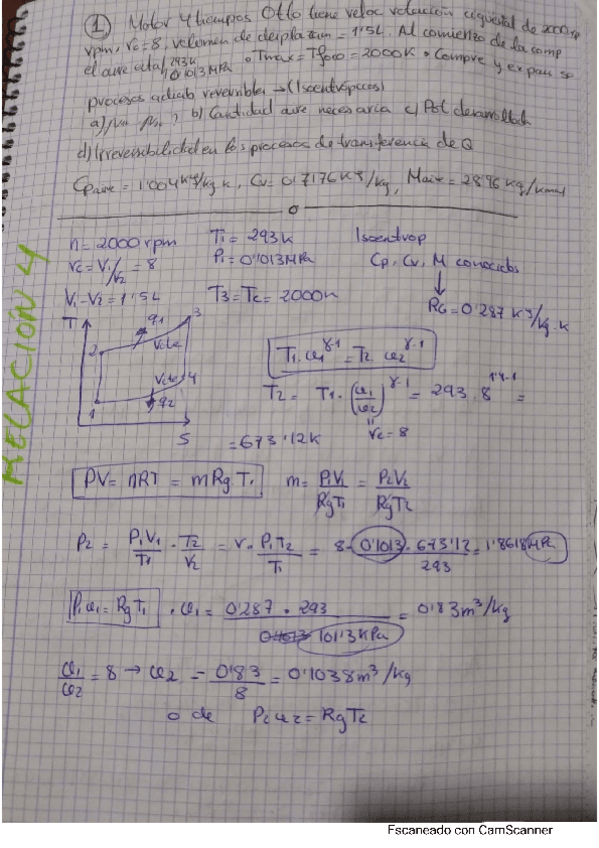 ① Motor 4 tiempos Otto tiene veloc rotación cigüeñal de 2000
rpm, rc=8, volumen de = 1'5L. Al comienzo de la comp
el aire 293K 0'1013MPa • Tmax = Tfoco = 2000K • Compre y expan so
procesos adiab reversibles → (Isoentrópicos)
a) b) Cantidad aire necesaria c) Pot desarrollada
d) Irreversibilidad en los procesos de transferencia de Q
Cp aire = 1'004 KJ/kg K, Cv = 0'7176 KJ/kg, Maire = 28'96 kg/kmol
RELACIÓN 4
n = 2000 rpm T1 = 293K Isoentrop
rc = V1/V2 = 8 P1 = 0'1013MPa Cp, Cv, M conocidos
V1-V2 = 1'5L T3 = Tc = 2000K Rg = 0'287 KJ/kg·K
T 2 q1 3 Vcte Vcte 4 1 q2 S
T1·v1^γ-1 = T2 v2^γ-1
T2 = T1·(v1/v2)^γ-1 = 293·8^1'4-1 =
rc = 8
= 673'12K
PV = nRT = mRgT. m = P1V1/RgT1 = P2V2/RgT2
P2 = P1V1/T1 · T2/V2 = r· P1T2/T1 = 8·0'1013·673'12/293 = 1'8618MPa
P1v1 = RgT1 · v1 = 0'287·293/101'3KPa = 0'83m³/kg
v1/v2 = 8 → v2 = 0'83/8 = 0'1038m³/kg
o de P2v2 = RgT2
Escaneado con CamScanner